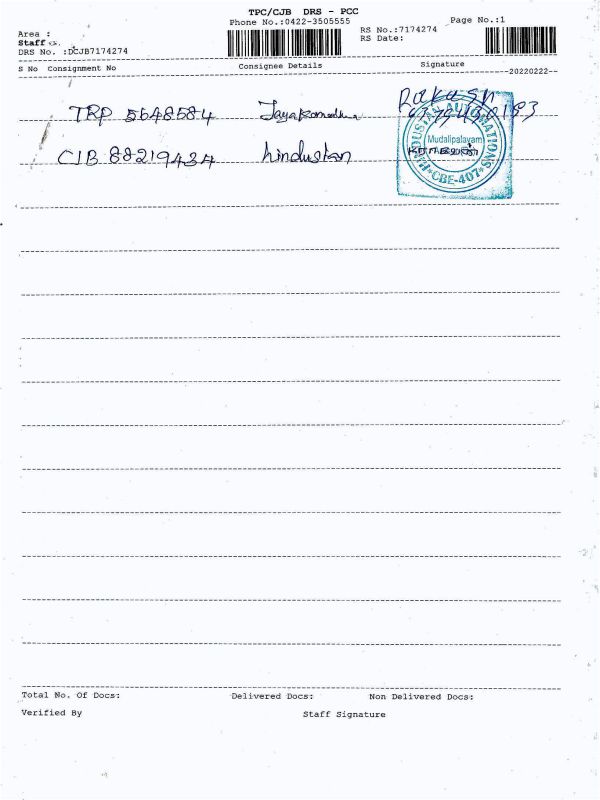 TPC/CJB DRS - PCC
Phone No.:0422-3505555
Page No.:1
Area :
RS No.:7174274
Staff
RS Date:
DRS No. :DCJB7174274
S No Consignment No Consignee Details Signature
20220222
TRP 5648584
CJB 88219434 hindustan
Rakash
HINDUSTAN AUTOMATIONS
Mudalipalayam
CBE-407
Total No. Of Docs: Delivered Docs: Non Delivered Docs:
Verified By Staff Signature